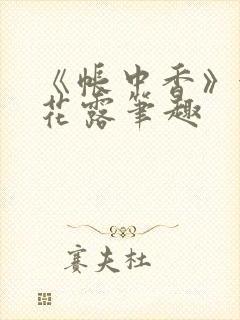 《帐中香》
花露笔趣
赛夫杜